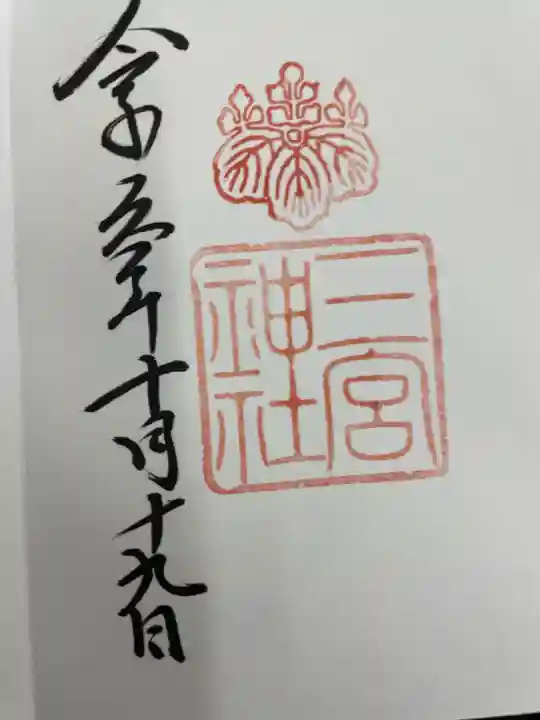 二宮
神社
令和元年十月十九日